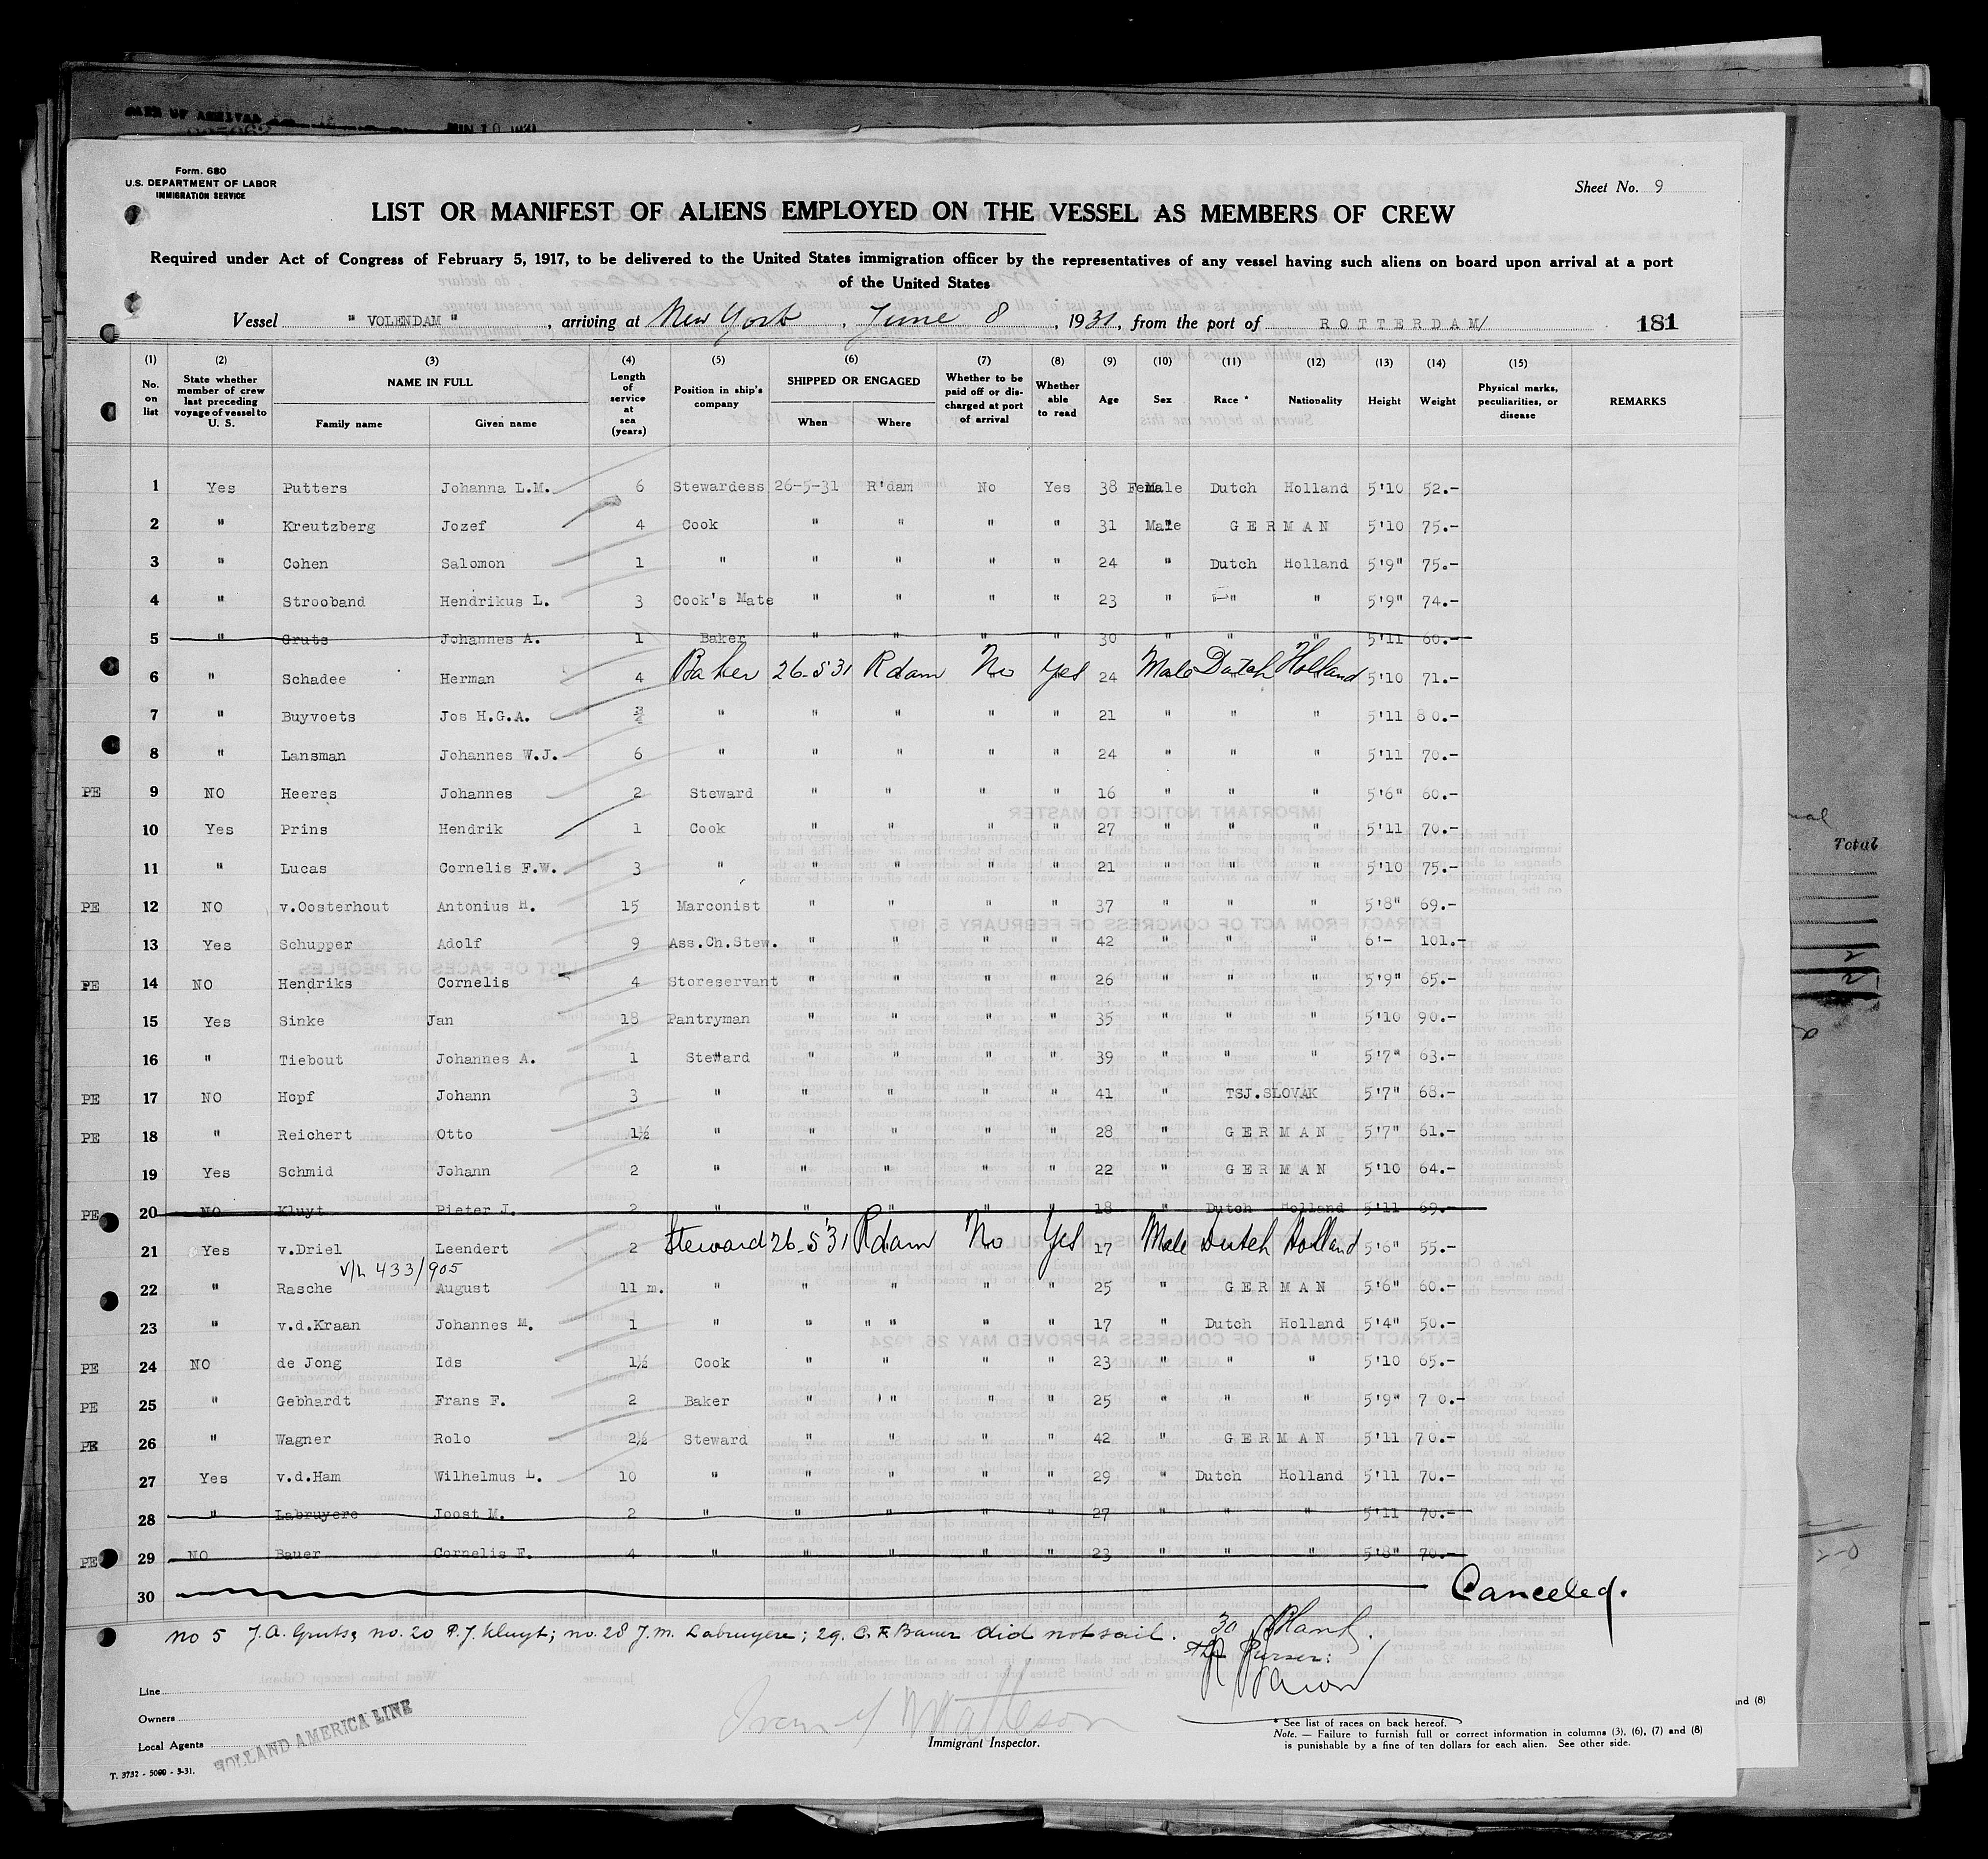 DATE OF ARRIVAL
JUN 10 1931
Form. 680
U.S. DEPARTMENT OF LABOR
IMMIGRATION SERVICE
Sheet No. 9
LIST OR MANIFEST OF ALIENS EMPLOYED ON THE VESSEL AS MEMBERS OF CREW
Required under Act of Congress of February 5, 1917, to be delivered to the United States immigration officer by the representatives of any vessel having such aliens on board upon arrival at a port
of the United States
Vessel " VOLENDAM " , arriving at New York , June 8 , 1931, from the port of ROTTERDAM/ 181
(1) No. on list (2) State whether member of crew last preceding voyage of vessel to U. S. (3) NAME IN FULL Family name Given name (4) Length of service at sea (years) (5) Position in ship's company (6) SHIPPED OR ENGAGED When Where (7) Whether to be paid off or discharged at port of arrival (8) Whether able to read (9) Age (10) Sex (11) Race * (12) Nationality (13) Height (14) Weight (15) Physical marks, peculiarities, or disease REMARKS
1 Yes Putters Johanna L.M. 6 Stewardess 26-5-31 R'dam No Yes 38 Female Dutch Holland 5'10 52.-
2 " Kreutzberg Jozef 4 Cook " " " " 31 Male GERMAN 5'10 75.-
3 " Cohen Salomon 1 " " " " " 24 " Dutch Holland 5'9" 75.-
4 " Strooband Hendrikus L. 3 Cook's Mate " " " " 23 " " " 5'9" 74.-
5 " Gruts Johannes A. 1 Baker " " " " 30 " " " 5'11 60.-
6 " Schadee Herman 4 Baker 26-5 31 Rdam No Yes 24 Male Dutch Holland 5'10 71.-
7 " Buyvoets Jos H.G.A. " " " " " 21 " " " 5'11 80.-
8 " Lansman Johannes W.J. 6 " " " " " 24 " " " 5'11 70.-
PE 9 NO Heeres Johannes 2 Steward " " " " 16 " " " 5'6" 60.-
10 Yes Prins Hendrik 1 Cook " " " " 27 " " " 5'11 70.-
11 " Lucas Cornelis F.W. 3 " " " " " 21 " " " 5'10 75.-
PE 12 NO v.Oosterhout Antonius H. 15 Marconist " " " " 37 " " " 5'8" 69.-
13 Yes Schupper Adolf 9 Ass.Ch.Stew. " " " " 42 " " " 6'- 101.-
PE 14 NO Hendriks Cornelis 4 Storeservant " " " " 26 " " " 5'9" 65.-
15 Yes Sinke Jan 18 Pantryman " " " " 35 " " " 5'10 90.-
16 " Tiebout Johannes A. 1 Steward " " " " 39 " " " 5'7" 63.-
PE 17 NO Hopf Johann 3 " " " " " 41 " TSJ.SLOVAK 5'7" 68.-
PE 18 " Reichert Otto 1½ " " " " " 28 " GERMAN 5'7" 61.-
19 Yes Schmid Johann 2 " " " " " 22 " GERMAN 5'10 64.-
PE 20 NO Kluyt Pieter J. 2 " " " " " 18 " Dutch Holland 5'11 69.-
21 Yes v.Driel Leendert 2 Steward 26-5'31 Rdam No Yes 17 Male Dutch Holland 5'6" 55.-
V/L 433/905
22 " Rasche August 11 m. " " " " " 25 " GERMAN 5'6" 60.-
23 " v.d.Kraan Johannes M. 1 " " " " " " 17 " Dutch Holland 5'4" 50.-
PE 24 NO de Jong Ids 1½ Cook " " " " 23 " " " 5'10 65.-
PE 25 " Gebhardt Frans F. 2 Baker " " " " 25 " " " 5'9" 70.-
PE 26 " Wagner Rolo 2½ Steward " " " " 42 " GERMAN 5'11 70.-
27 Yes v.d.Ham Wilhelmus L. 10 " " " " " 29 " Dutch Holland 5'11 70.-
28 " Labruyere Joost M. 2 " " " " " 27 " " " 5'11 70.-
PE 29 NO Bauer Cornelis F. 4 " " " " " 23 " " " 5'8" 70.-
30 Canceled.
no 5 J.A. Gruts, no. 20 P.J. Kluyt; no. 28 J.M. Labruyere; 29. C.F. Bauer did not sail. 30
Purser:
Line
Owners
Local Agents
HOLLAND AMERICA LINE
Immigrant Inspector.
* See list of races on back hereof.
Note. — Failure to furnish full or correct information in columns (3), (6), (7) and (8)
is punishable by a fine of ten dollars for each alien. See other side.
T. 3732 - 5000 - 3-31.
Total
and (8)